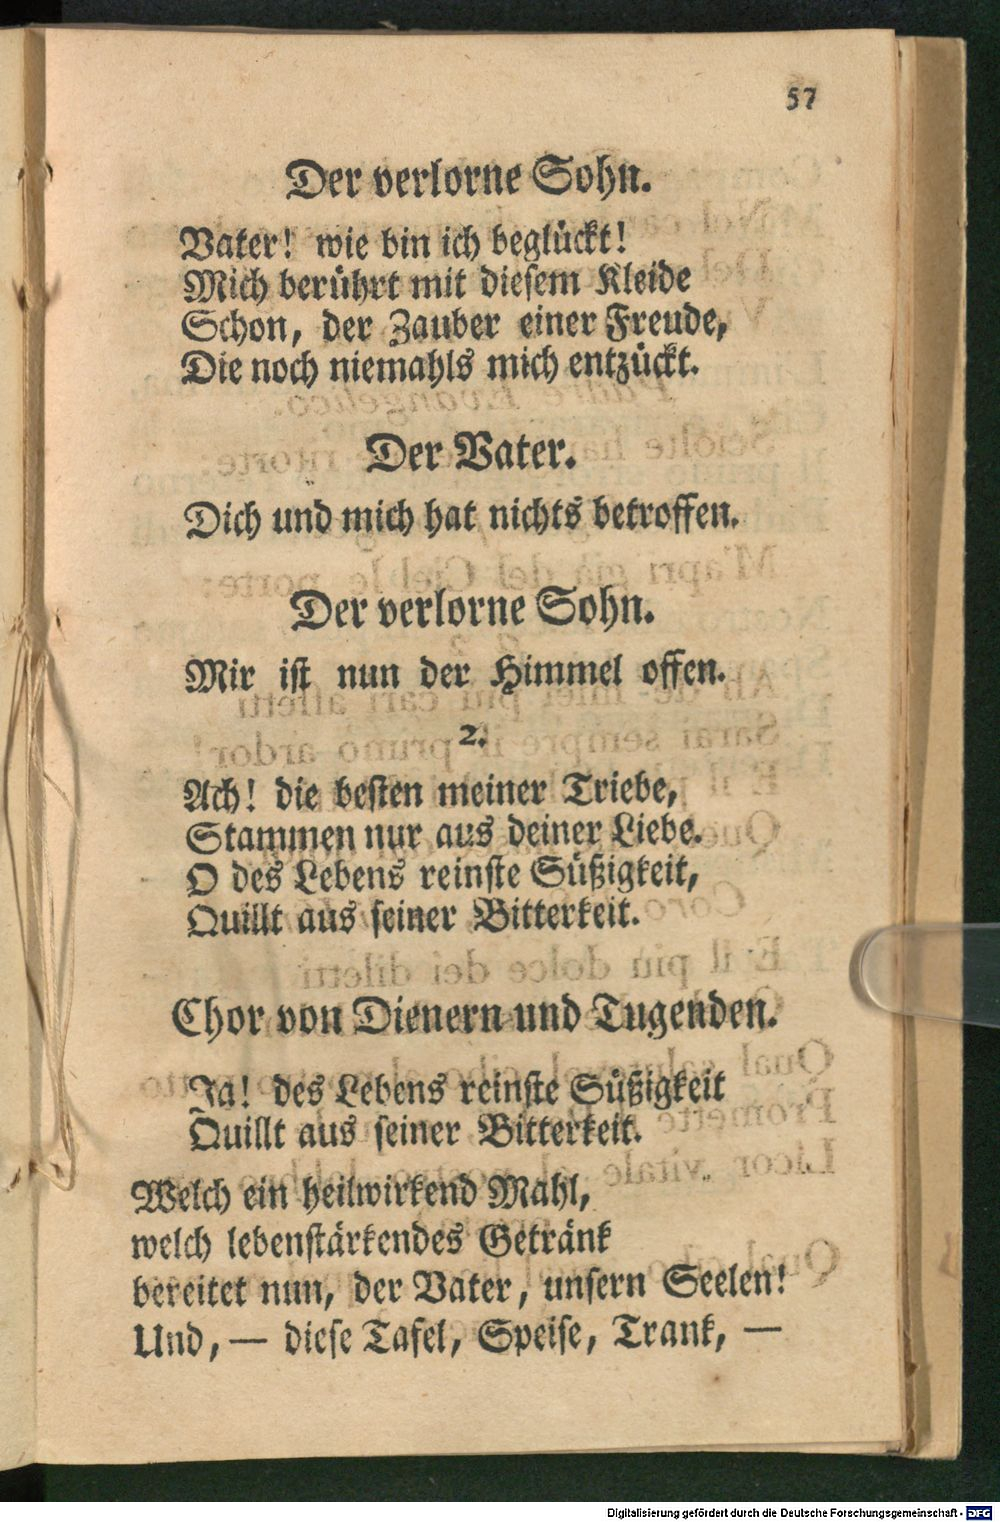 57
Der verlorne Sohn.
Vater! wie bin ich beglückt!
Mich berührt mit diesem Kleide
Schon, der Zauber einer Freude,
Die noch niemahls mich entzückt.
Der Vater.
Dich und mich hat nichts betroffen.
Der verlorne Sohn.
Mir ist nun der Himmel offen.
2.
Ach! die besten meiner Triebe,
Stammen nur aus deiner Liebe.
O des Lebens reinste Süßigkeit,
Quillt aus seiner Bitterkeit.
Chor von Dienern und Tugenden.
Ja! des Lebens reinste Süßigkeit
Quillt aus seiner Bitterkeit.
Welch ein heilwirkend Mahl,
welch lebenstärkendes Getränk
bereitet nun, der Vater, unsern Seelen!
Und, — diese Tafel, Speise, Trank, —
Digitalisierung gefördert durch die Deutsche Forschungsgemeinschaft - DFG